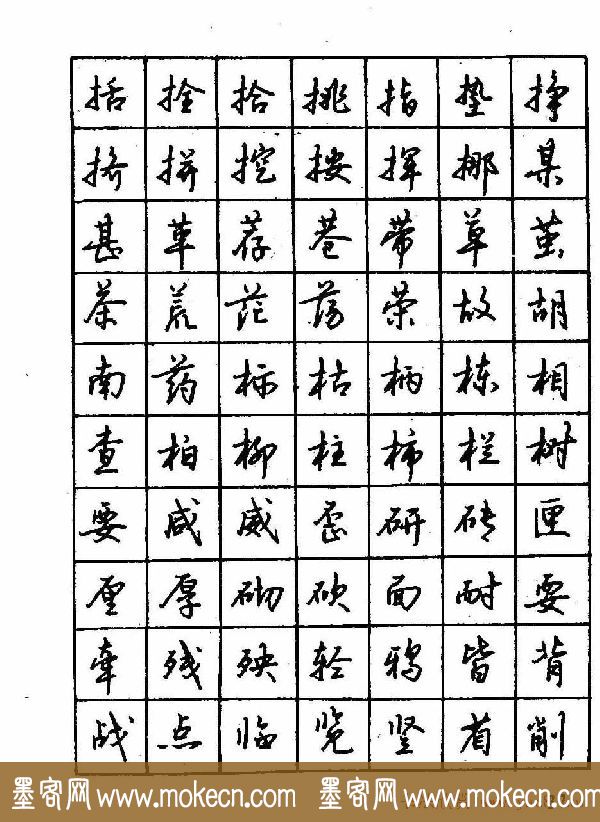 括 拴 拾 挑 指 垫 挣
挤 拼 挖 按 挥 挪 某
甚 革 荐 巷 带 草 茧
茶 荒 茫 荡 荣 故 胡
南 药 标 枯 柄 栋 相
查 柏 柳 柱 柿 栏 树
要 咸 威 歪 研 砖 厘
厘 厚 砌 砍 面 耐 耍
牵 残 殃 轻 鸦 皆 背
战 点 临 览 竖 省 削
墨客网 www.mokecn.com 墨客网 www.mokecn.com